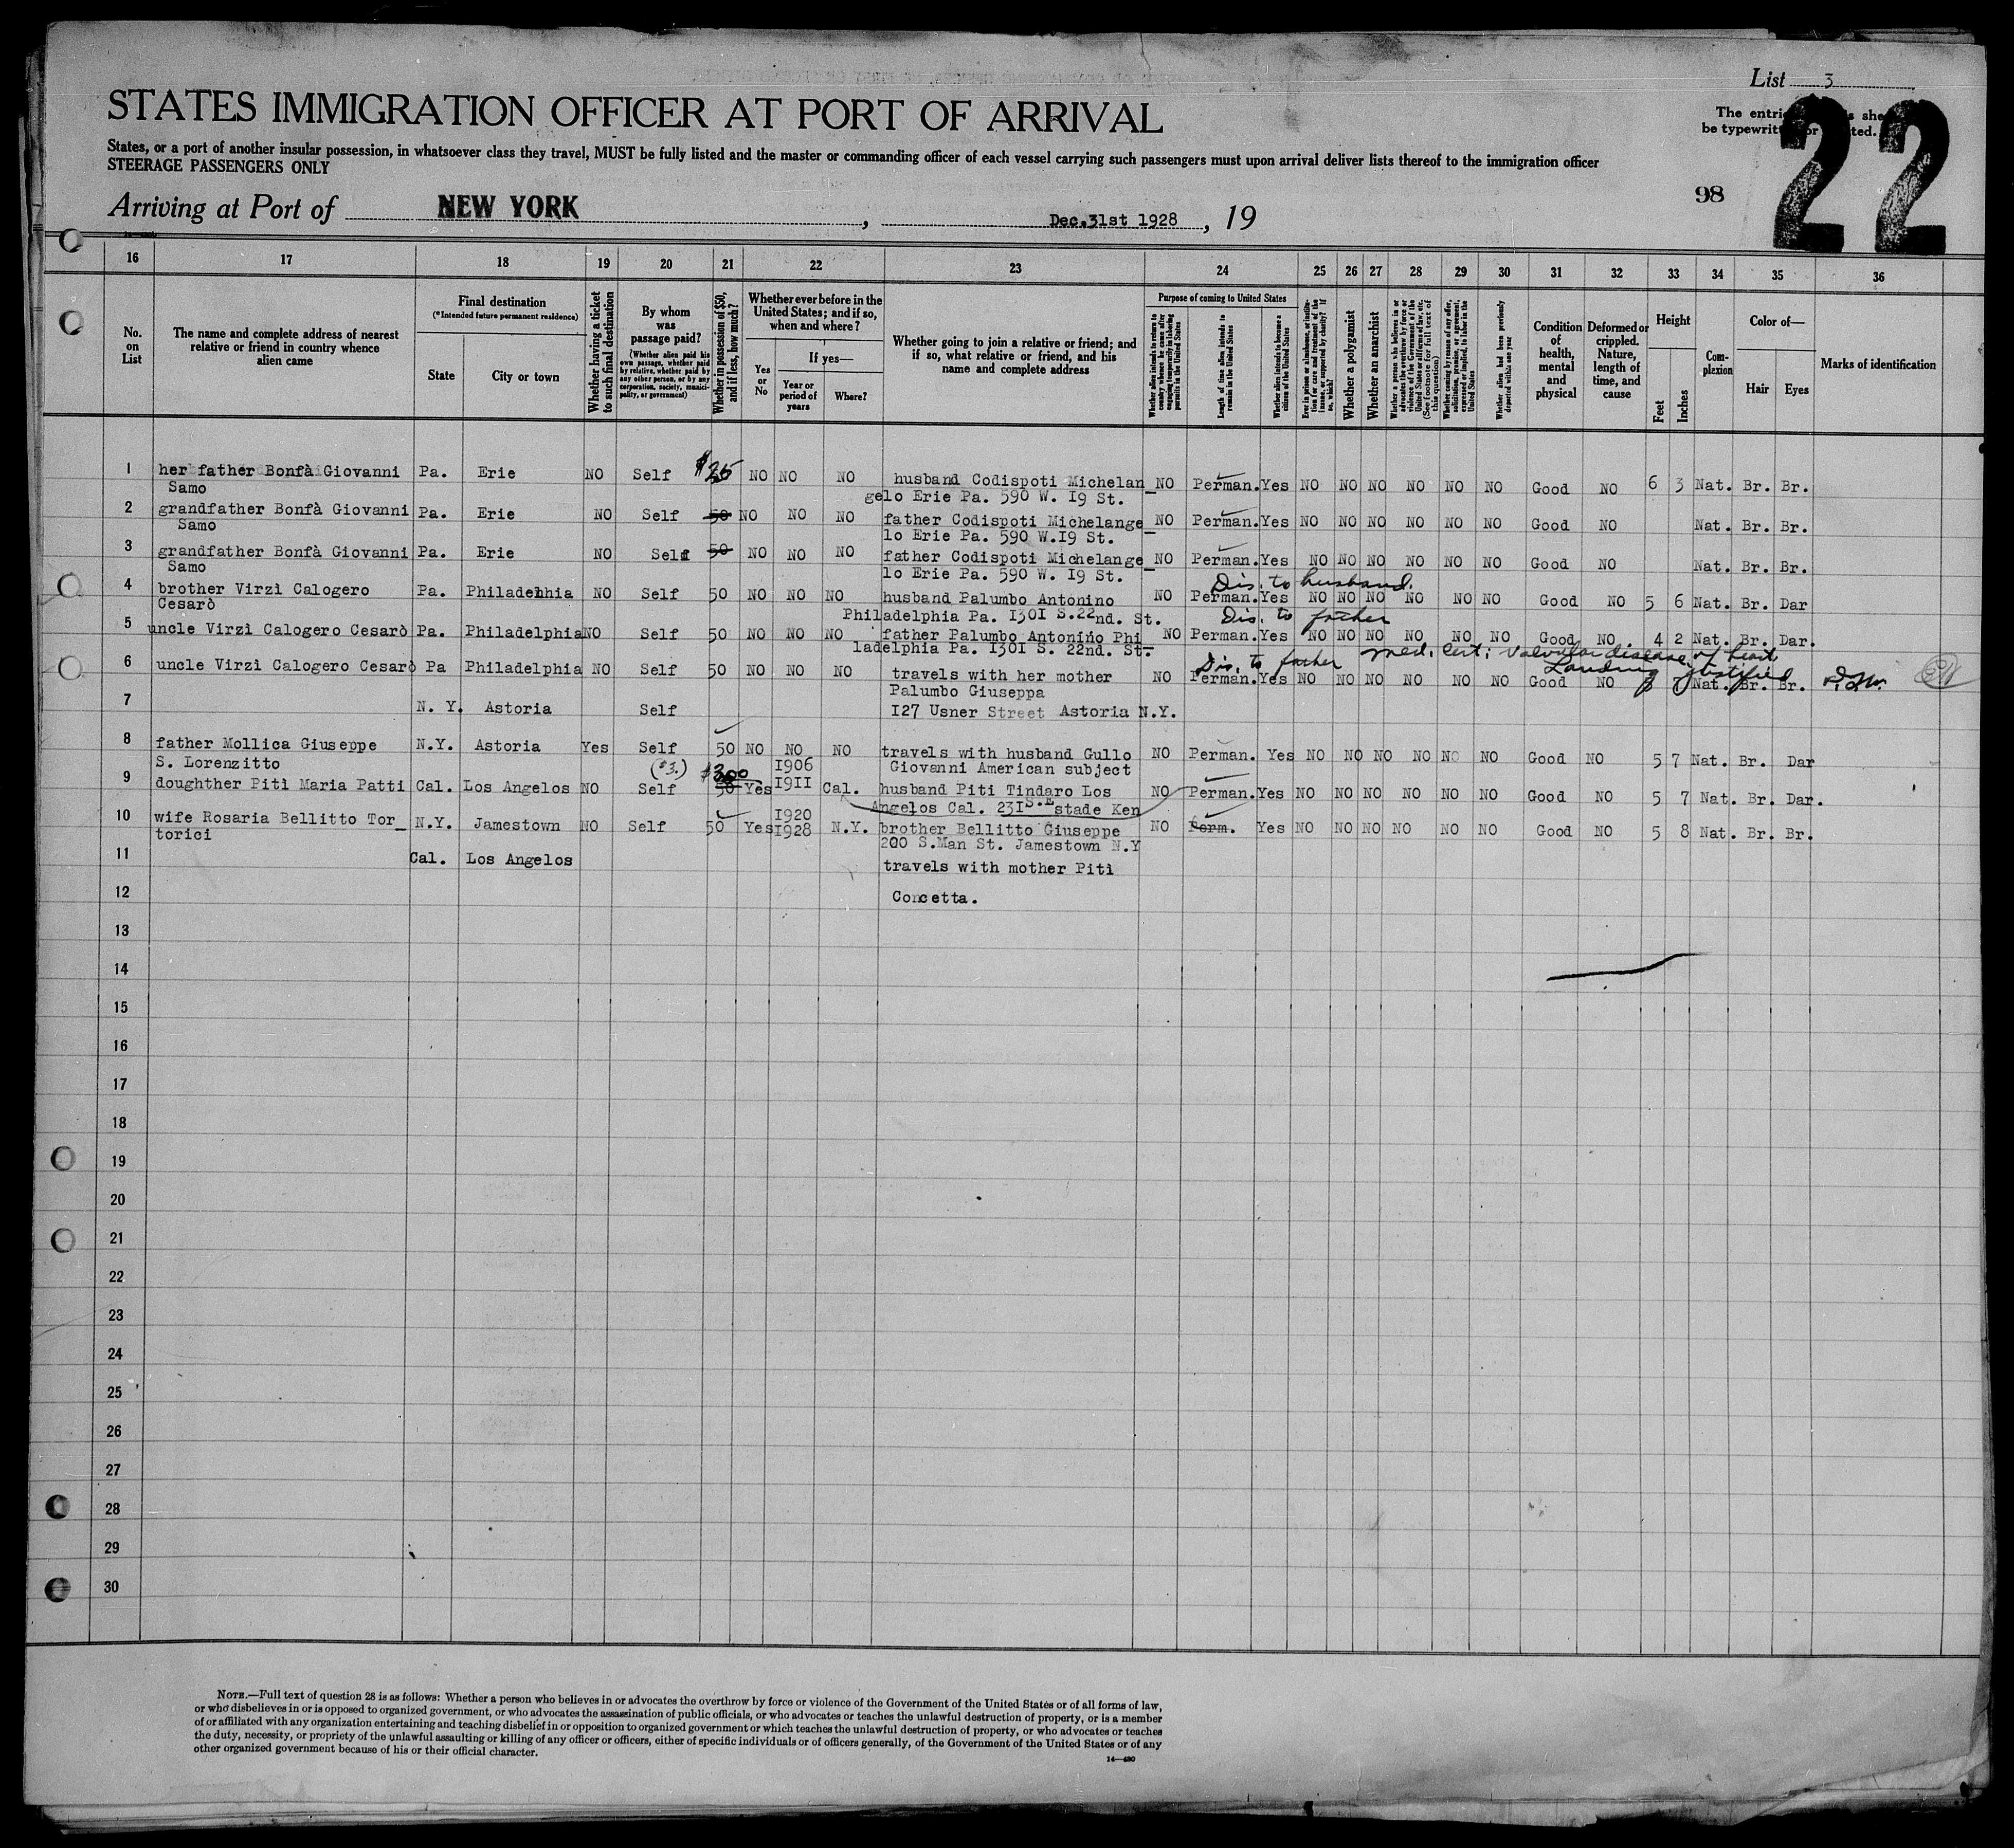 List 3
STATES IMMIGRATION OFFICER AT PORT OF ARRIVAL
The entri s she
be typewritt or ted.
22
States, or a port of another insular possession, in whatsoever class they travel, MUST be fully listed and the master or commanding officer of each vessel carrying such passengers must upon arrival deliver lists thereof to the immigration officer
STEERAGE PASSENGERS ONLY
98
Arriving at Port of NEW YORK , Dec.31st 1928 , 19
16 17 18 19 20 21 22 23 24 25 26 27 28 29 30 31 32 33 34 35 36
No. on List
The name and complete address of nearest relative or friend in country whence alien came
Final destination
(*Intended future permanent residence)
State
City or town
Whether having a ticket to such final destination
By whom was passage paid?
(Whether alien paid his own passage, whether paid by relative, whether paid by any other person, or by any corporation, society, municipality, or government)
Whether in possession of $50, and if less, how much?
Whether ever before in the United States; and if so, when and where?
Yes or No
If yes—
Year or period of years
Where?
Whether going to join a relative or friend; and if so, what relative or friend, and his name and complete address
Purpose of coming to United States
Whether alien intends to return to country whence he came after engaging temporarily in laboring pursuits in the United States
Length of time alien intends to remain in the United States
Whether alien intends to become a citizen of the United States
Ever in prison or almshouse, or institution for care and treatment of the insane, or supported by charity? If so, which?
Whether a polygamist
Whether an anarchist
Whether a person who believes in or advocates the overthrow by force or violence of the Government of the United States or all forms of law, etc. (See footnote for full text of this question)
Whether coming by reason of any offer, solicitation, promise, or agreement, expressed or implied, to labor in the United States
Whether alien had been previously deported within one year
Condition of health, mental and physical
Deformed or crippled. Nature, length of time, and cause
Height
Feet
Inches
Com-plexion
Color of—
Hair
Eyes
Marks of identification
1 her father Bonfà Giovanni Pa. Erie NO Self $25 NO NO NO husband Codispoti Michelan_ NO Perman. Yes NO NO NO NO NO NO Good NO 6 3 Nat. Br. Br.
Samo gelo Erie Pa. 590 W. I9 St.
2 grandfather Bonfà Giovanni Pa. Erie NO Self 50 NO NO NO father Codispoti Michelange_ NO Perman. Yes NO NO NO NO NO NO Good NO Nat. Br. Br.
Samo lo Erie Pa. 590 W.I9 St.
3 grandfather Bonfà Giovanni Pa. Erie NO Self 50 NO NO NO father Codispoti Michelange_ NO Perman. Yes NO NO NO NO NO NO Good NO Nat. Br. Br.
Samo lo Erie Pa. 590 W. I9 St.
Dis. to husband.
4 brother Virzì Calogero Pa. Philadelhia NO Self 50 NO NO NO husband Palumbo Antonino NO Perman. Yes NO NO NO NO NO NO Good NO 5 6 Nat. Br. Dar
Cesarò Philadelphia Pa. I30I S.22nd. St.
Dis. to father
5 uncle Virzì Calogero Cesarò Pa. Philadelphia NO Self 50 NO NO NO father Palumbo Antonino Phi NO Perman. Yes NO NO NO NO NO NO Good NO 4 2 Nat. Br. Dar.
ladelphia Pa. I30I S. 22nd. St.-
Dis. to father med. cert: valvular disease of heart
Landing justified
6 uncle Virzì Calogero Cesarò Pa Philadelphia NO Self 50 NO NO NO travels with her mother NO Perman. Yes NO NO NO NO NO NO Good NO Nat. Br. Br.
Palumbo Giuseppa
7 N. Y. Astoria Self I27 Usner Street Astoria N.Y.
8 father Mollica Giuseppe N.Y. Astoria Yes Self 50 NO NO NO travels with husband Gullo NO Perman. Yes NO NO NO NO NO NO Good NO 5 7 Nat. Br. Dar
S. Lorenzitto (#3.) $300 I906 Giovanni American subject
9 doughther Pitì Maria Patti Cal. Los Angelos NO Self 50 Yes I9II Cal. husband Piti Tindaro Los NO Perman. Yes NO NO NO NO NO NO Good NO 5 7 Nat. Br. Dar.
Angelos Cal. 23I S.E stade Ken
10 wife Rosaria Bellitto Tor_ N.Y. Jamestown NO Self 50 Yes I920 I928 N.Y. brother Bellitto Giuseppe NO Perm. Yes NO NO NO NO NO NO Good NO 5 8 Nat. Br. Br.
torici 200 S.Man St. Jamestown N.Y
11 Cal. Los Angelos travels with mother Pitì
12 Concetta.
13
14
15
16
17
18
19
20
21
22
23
24
25
26
27
28
29
30
NOTE.—Full text of question 28 is as follows: Whether a person who believes in or advocates the overthrow by force or violence of the Government of the United States or of all forms of law,
or who disbelieves in or is opposed to organized government, or who advocates the assassination of public officials, or who advocates or teaches the unlawful destruction of property, or is a member
of or affiliated with any organization entertaining and teaching disbelief in or opposition to organized government or which teaches the unlawful destruction of property, or who advocates or teaches
the duty, necessity, or propriety of the unlawful assaulting or killing of any officer or officers, either of specific individuals or of officers generally, of the Government of the United States or of any
other organized government because of his or their official character.
14—430